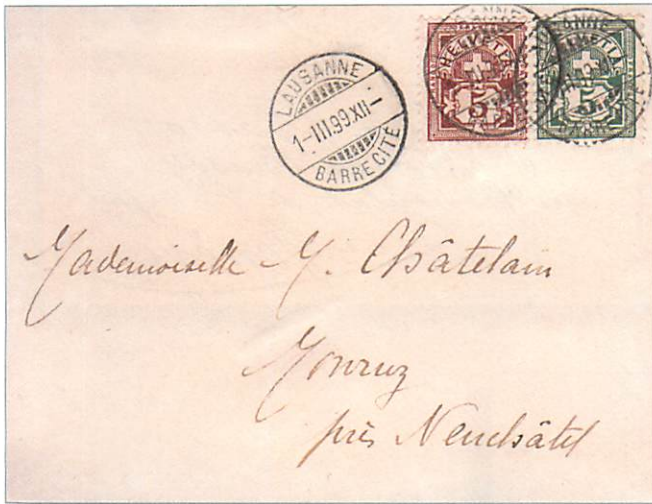 LAUSANNE
1-III.99.XII-
BARRE CITÉ
HELVETIA
5
HELVETIA
5
Mademoiselle M. Châtelain
Monruz
près Neuchâtel